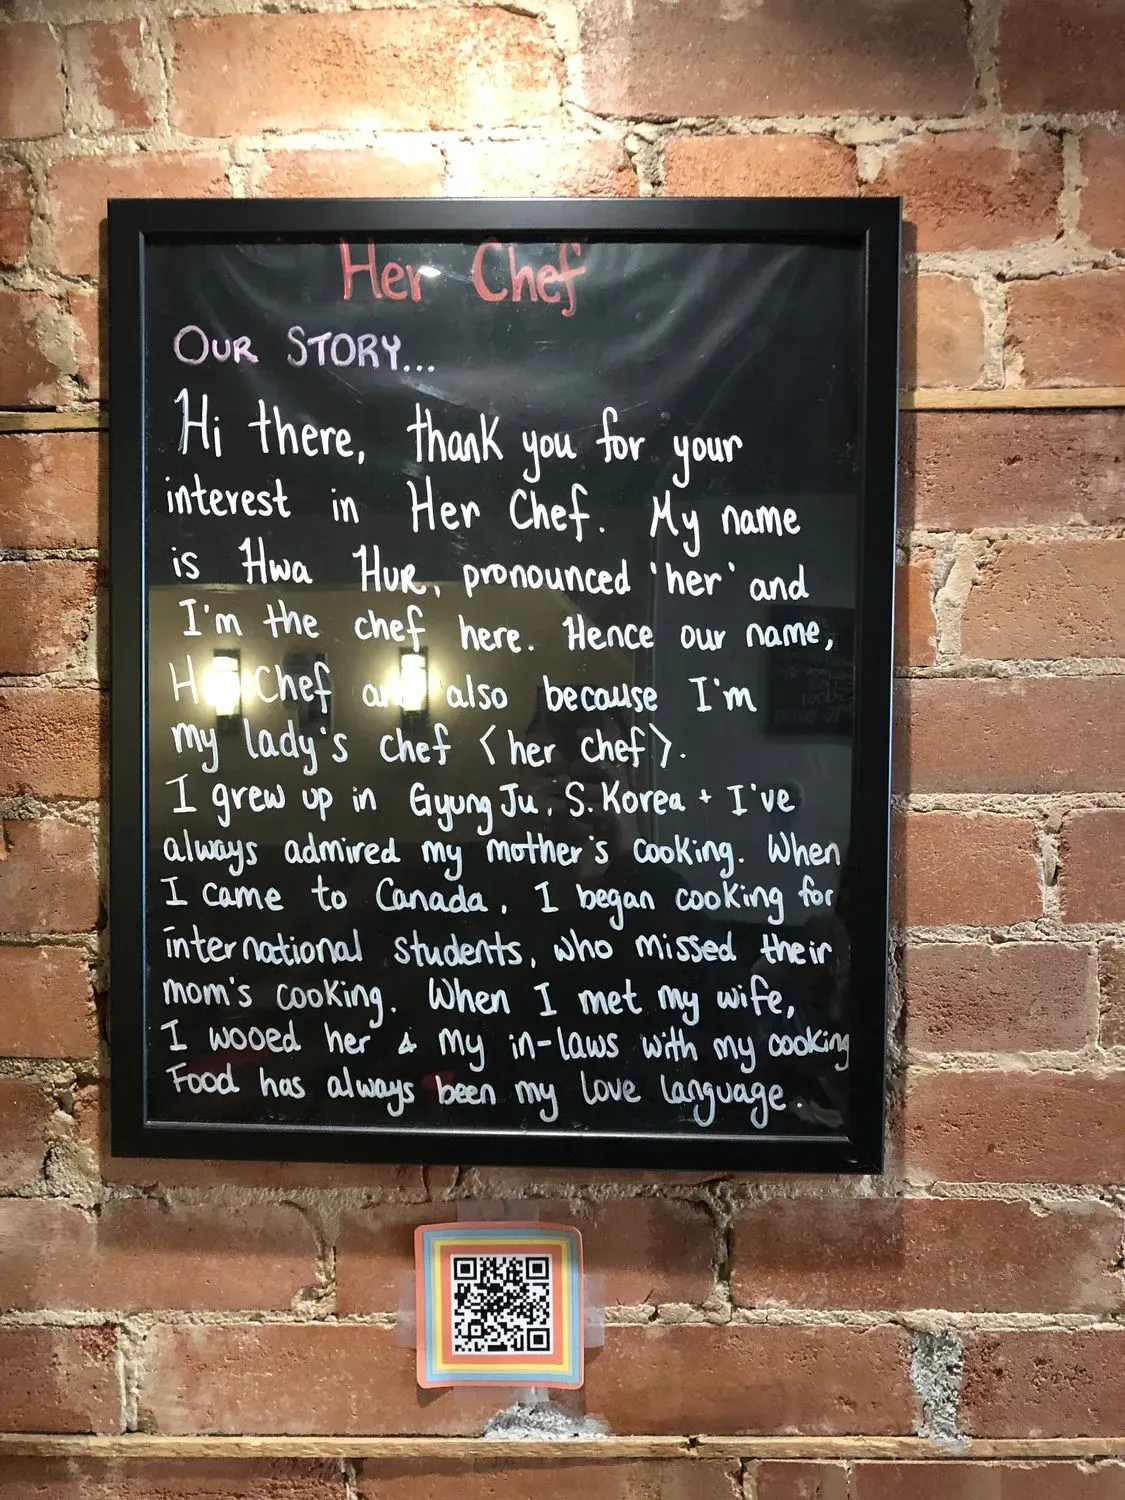 Her Chef
OUR STORY...
Hi there, thank you for your
interest in Her Chef. My name
is Hwa HUR, pronounced 'her' and
I'm the chef here. Hence our name,
Chef also because I'm
my lady's chef <her chef>.
I grew up in Gyung Ju, S. Korea + I've
always admired my mother's cooking. When
I came to Canada, I began cooking for
international students, who missed their
mom's cooking. When I met my wife,
I wooed her & my in-laws with my cooking
Food has always been my love language.